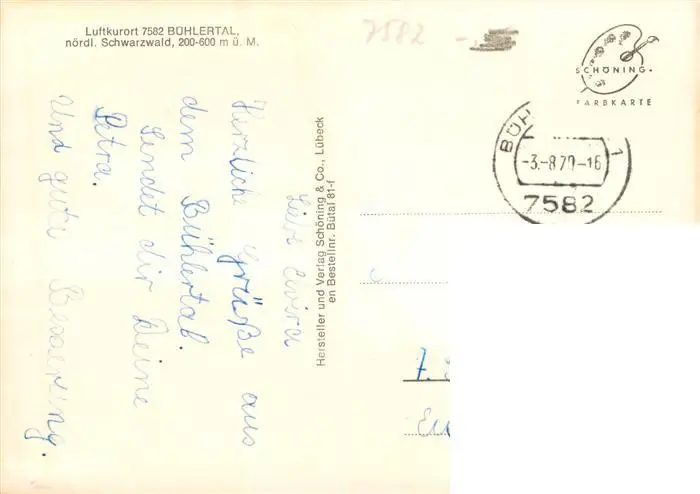 Luftkurort 7582 BÜHLERTAL,
nördl. Schwarzwald, 200-600 m ü. M.
7582
SCHÖNING
FARBKARTE
BÜH 1
-3.-8.70-16
7582
Hersteller und Verlag Schöning & Co., Lübeck
en Bestellnr. Bütal 81-f
Liebe
Herzliche Grüße aus
dem Bühlertal.
Sendet dir Deine
Petra.
Und gute Besserung.
7.